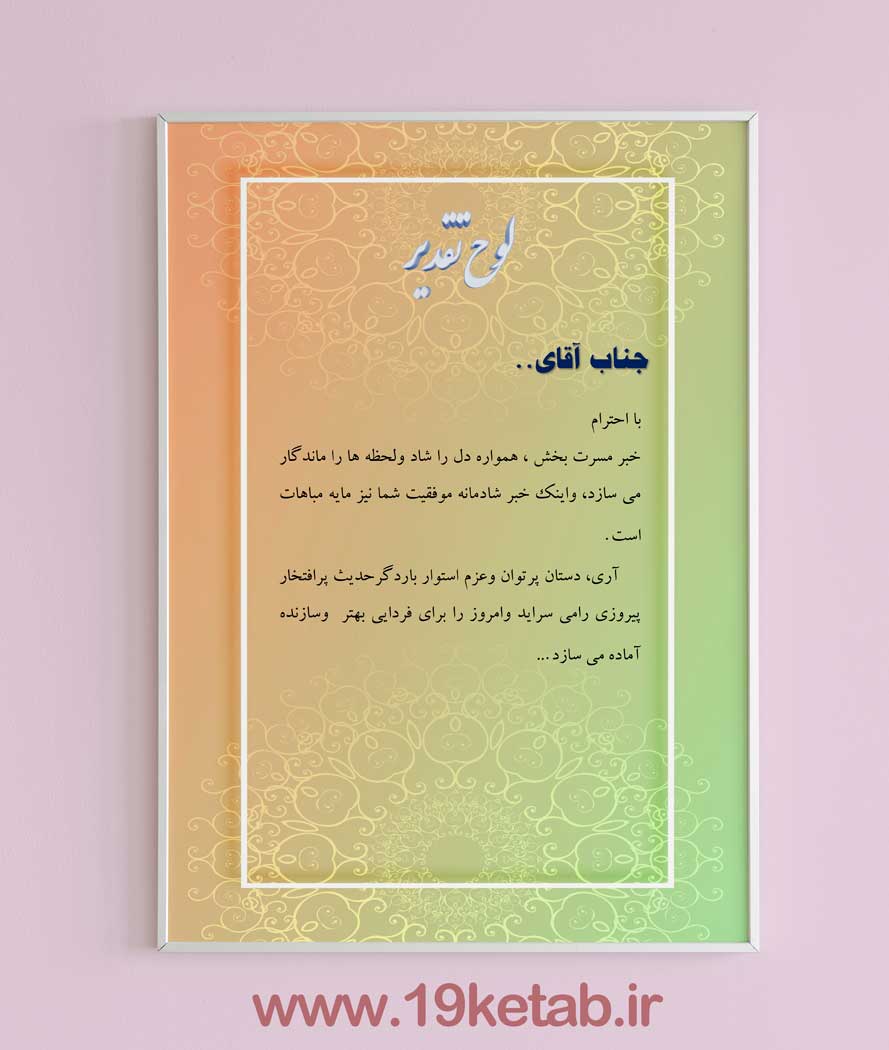 لوح تقدیر
جناب آقای..
با احترام
خبر مسرت بخش ، همواره دل را شاد ولحظه ها را ماندگار
می سازد، واینک خبر شادمانه موفقیت شما نیز مایه مباهات
است .
آری، دستان پرتوان وعزم استوار باردگرحدیث پرافتخار
پیروزی رامی سراید وامروز را برای فردایی بهتر وسازنده
آماده می سازد ...
www.19ketab.ir